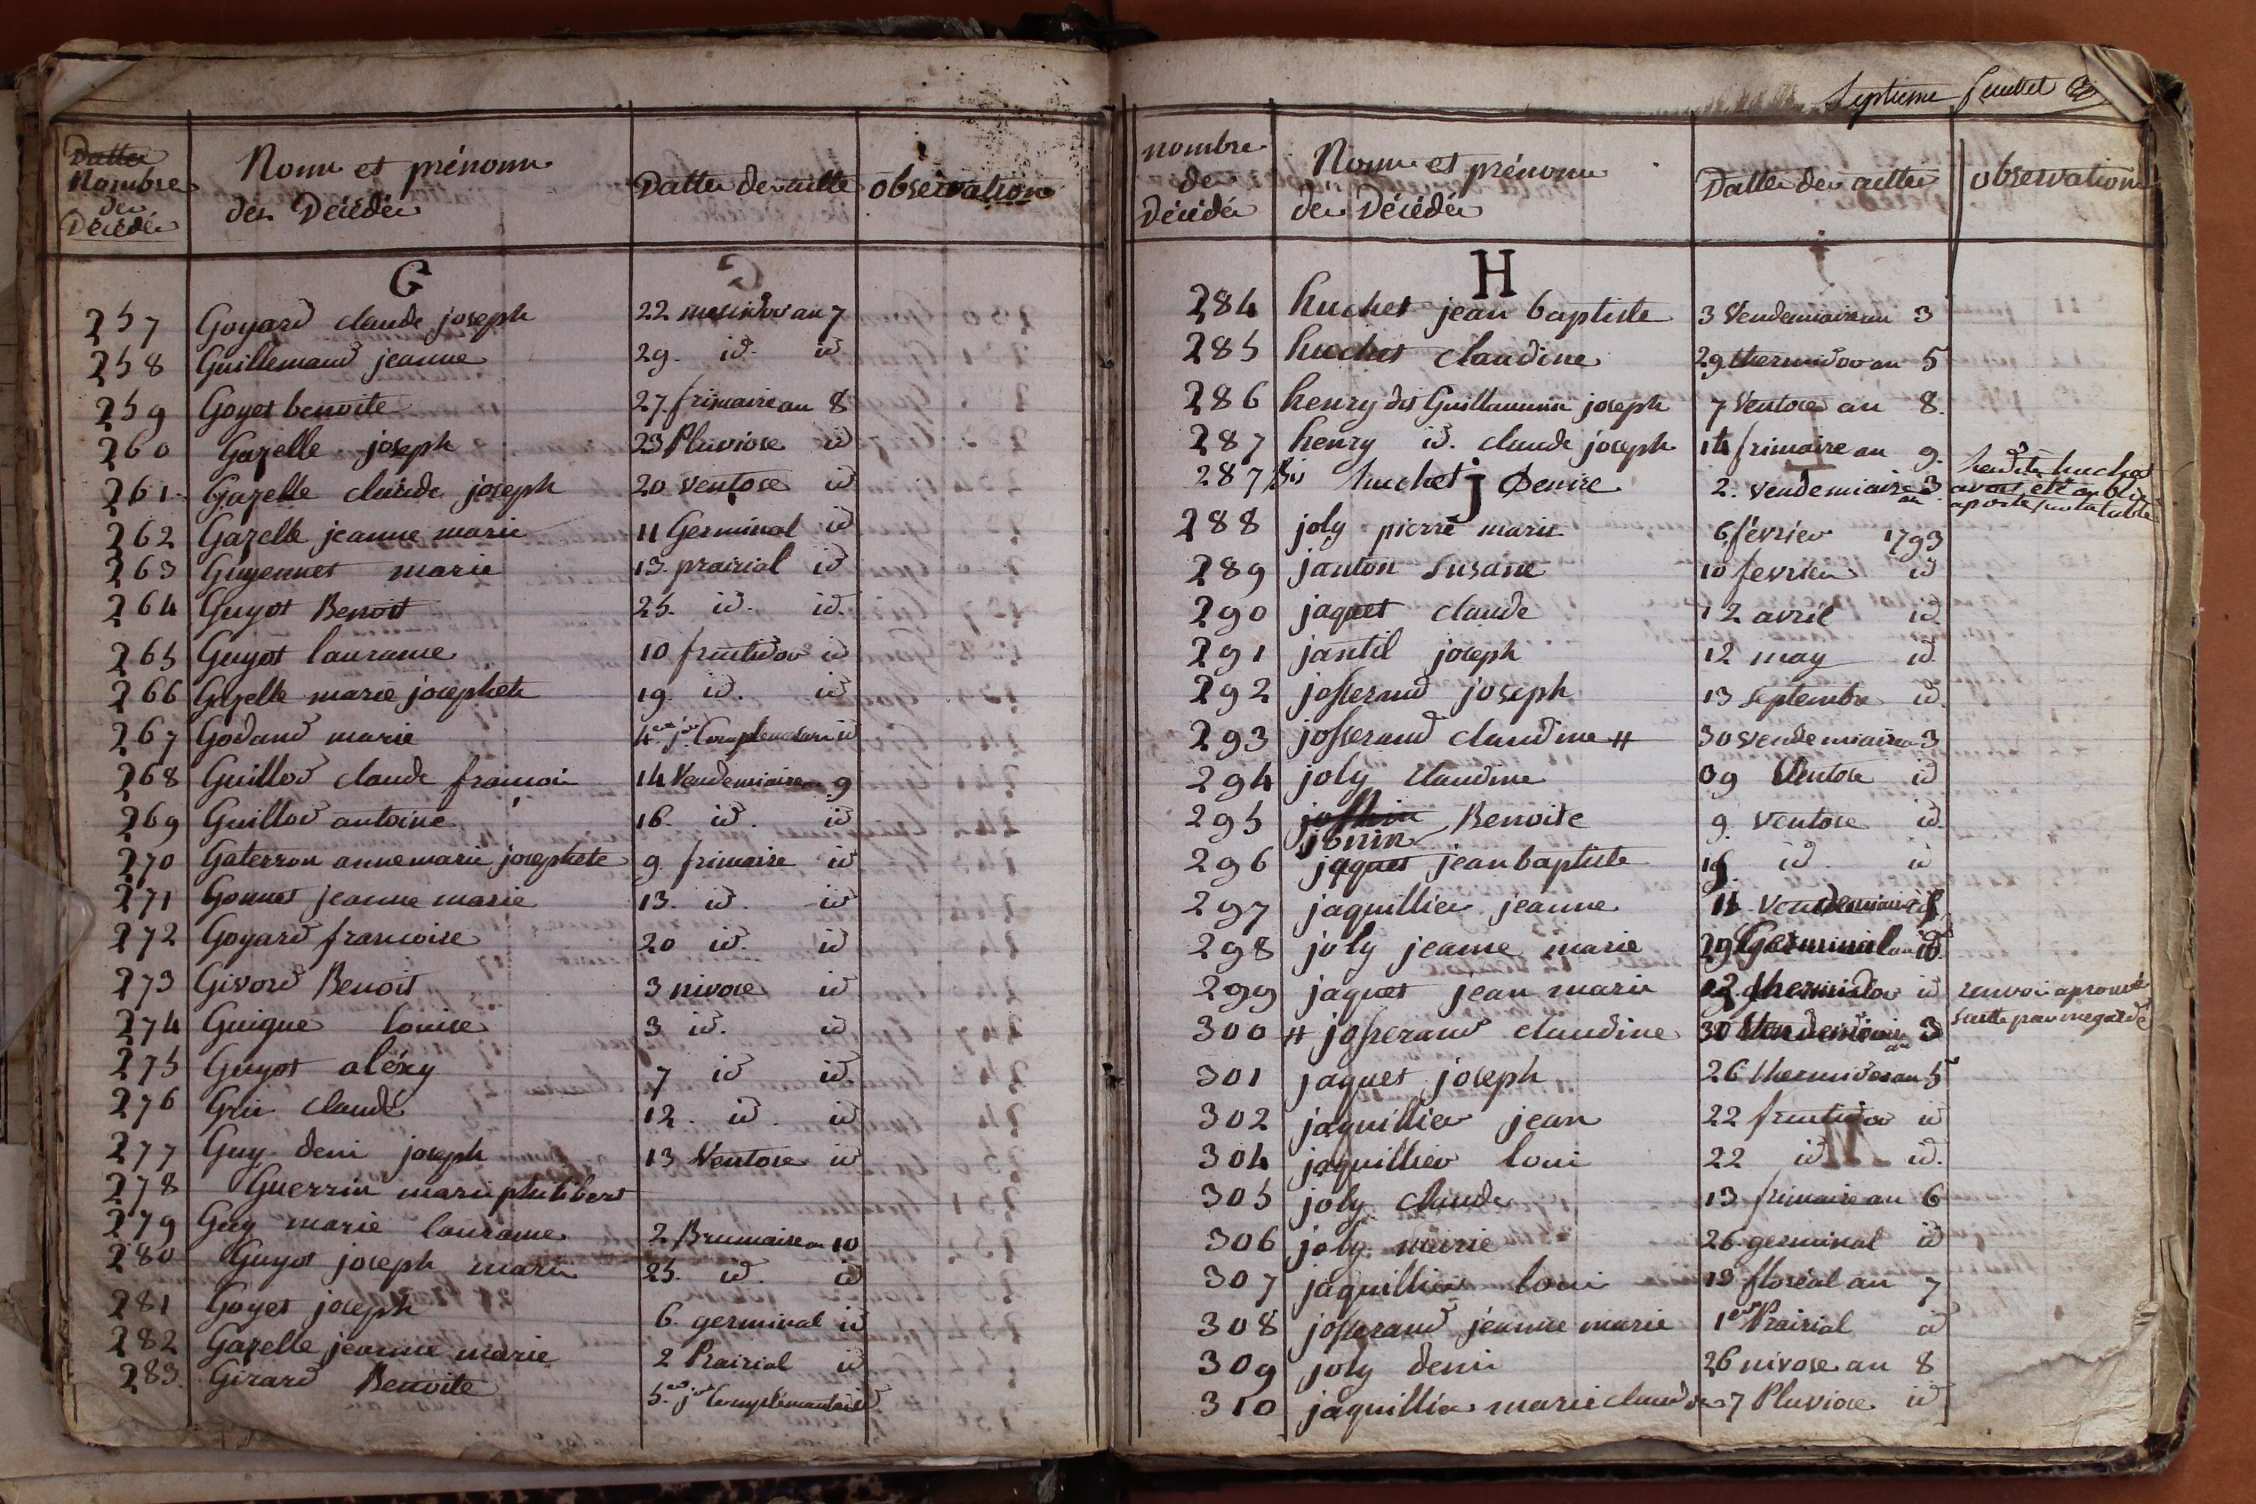 Datte
Nombre
des
Décédés
Noms et prénoms
des Décédés
Datte des actte
observations
G
257 Goyard claude joseph 22 messidor an 7
258 Guillemaud jeanne 29. id. id
259 Goyet benoite 27 frimaire an 8
260 Gazelle joseph 23 Pluviose id
261 Gazelle claude joseph 20 ventose id
262 Gazelle jeanne marie 11 Germinal id
263 Guyennet marie 13 prairial id
264 Guyot Benoit 25. id. id.
265 Guyot lauranne 10 fructidor id
266 Gazelle marie josephete 19. id. id
267 Godaud marie 4me jour Complementaire id
268 Guillod claude francois 14 Vendemiaire an 9
269 Guillod antoine 16. id. id
270 Gaterron anne marie josephete 9 frimaire id
271 Gonnet jeanne marie 13. id. id
272 Goyard francoise 20 id. id
273 Givord Benoit 3 nivose id
274 Guigue louise 3 id. id
275 Guyot aléxy 7 id id.
276 Gris claude 12. id. id
277 Guy denis joseph 13 Ventose id
278 Guerrin marie philibert
279 Guy marie lauranne 2 Brumaire an 10
280 Guyot joseph marie 25. id. id
281 Goyet joseph 6 germinal id
282 Gazelle jeanne marie 2 Prairial id
283 Girard Benoite 5me jour Complémentaire id
Septieme feuillet
nombre
des
Décédés
Noms et prénoms
des Décédés
Datte des acttes
observations
H
284 huchet jean baptiste 3 Vendemiaire an 3
285 huchet claudine 29 thermidor an 5
286 henry dis Guillaumin joseph 7 Ventose an 8.
287 henry id. claude joseph 14 frimaire an 9.
287 bis huchet Denise 2. vendemiaire an 3 ledite huchet
avoit été oublié
a porter sur la table
j
288 joly pierre marie 6 février 1793
289 janton Susane 10 fevrier id
290 jaquet claude 12 avril id.
291 jantil joseph 12 may id
292 josserand joseph 13 septembre id.
293 josserand claudine # 30 vendemiaire an 3
294 joly claudine 09 Ventose id
295 Benoite 9. ventose id.
jonin
296 jaquet jean baptiste 19. id. id
297 jaquillier jeanne 11 Vendemiaire
298 joly jeanne marie 29 Germinal id
299 jaquet jean marie 12 thermidor id renvoi a
300 # josserand claudine 30 Vendemiaire an 3 suitte par megarde
301 jaquet joseph 26 thermidor an 5
302 jaquillier jean 22 fructidor id
304 jaquillier louis 22 id id.
305 joly claude 13 frimaire an 6
306 joly marie 26 germinal id
307 jaquillier louis 13 floréal an 7
308 josserand jeanne marie 1er Prairial id
309 joly denis 26 nivose an 8
310 jaquillier marie claudine 7 Pluviose id